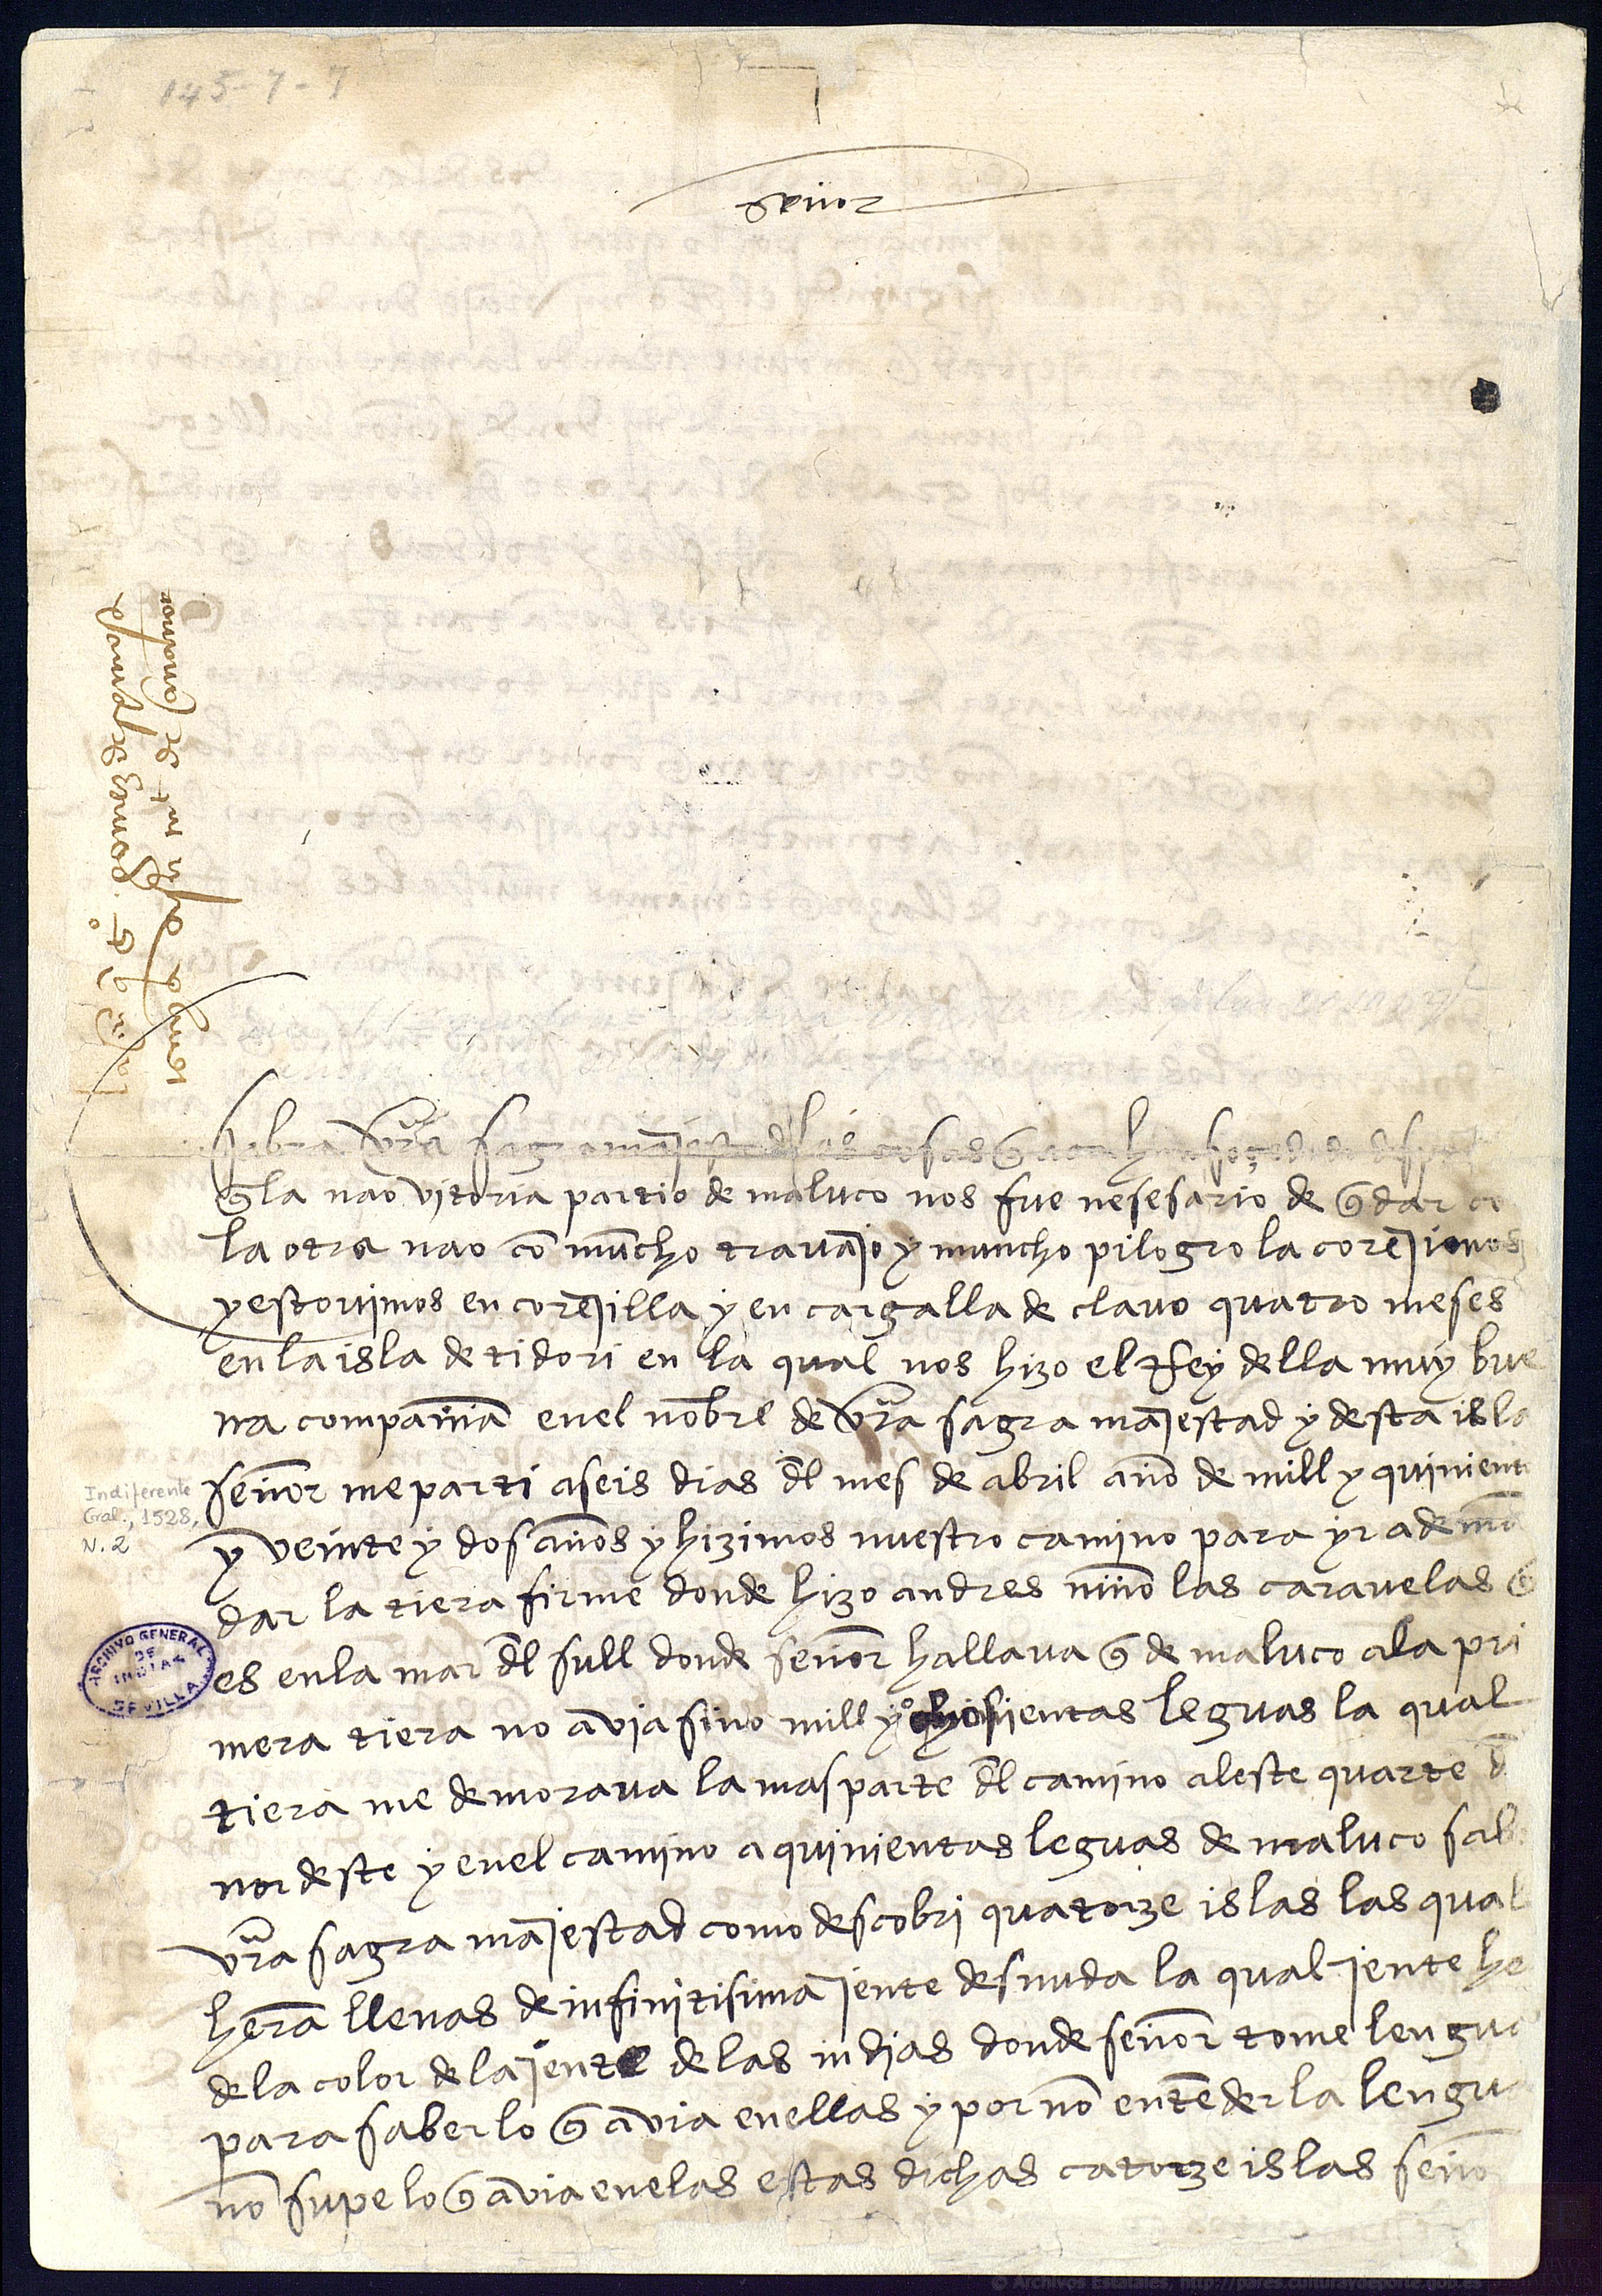 145-7-7
señor
sabra vra sagra majestad las cosas q aca han soçedido despues
q la nao vitoria partio de maluco nos fue nesesario de qdar co
la otra nao cõ mũcho travajo y muncho pilogro la corẽjimos
y estovimos en corẽjilla y en cargalla de clavo quatro meses
en la isla de tidori en la qual nos hizo el Rey della muy bue
na compañia en el nõbre de vra sagra majestad y desta isla
señor me parti a seis dias dl mes de abril año de mill y quinient
y veinte y dos años y hizimos nuestro camino para yr a demã
dar la tiera firme donde hizo andres niño las caravelas q
es en la mar dl sull donde señor hallava q de maluco a la pri
mera tiera no avia sino mill y ochosientas leguas la qual
tiera me demorava la mas parte dl camino al este quarte d
nordeste y en el camino a quinientas leguas de maluco sab
vra sagra majestad como descobri quatorze islas las qual
herã llenas de infinitisima jente desnuda la qual jente he
de la color de la jente de las indias donde señor tome lengua
para saber lo q avia en ellas y por nõ entẽder la lengua
nõ supe lo q avia en elas estas dichas catorze islas seño
Indiferente
Gral., 1528,
N. 2
ARCHIVO GENERAL
DE
INDIAS
SEVILLA
© Archivos Estatales, http://pares.culturaydeporte.gob.es